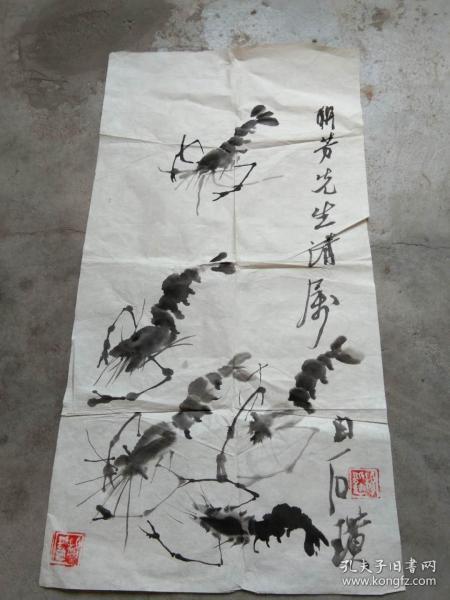 明芳先生清属
田一石璜
孔夫子旧书网
www.kongfz.com